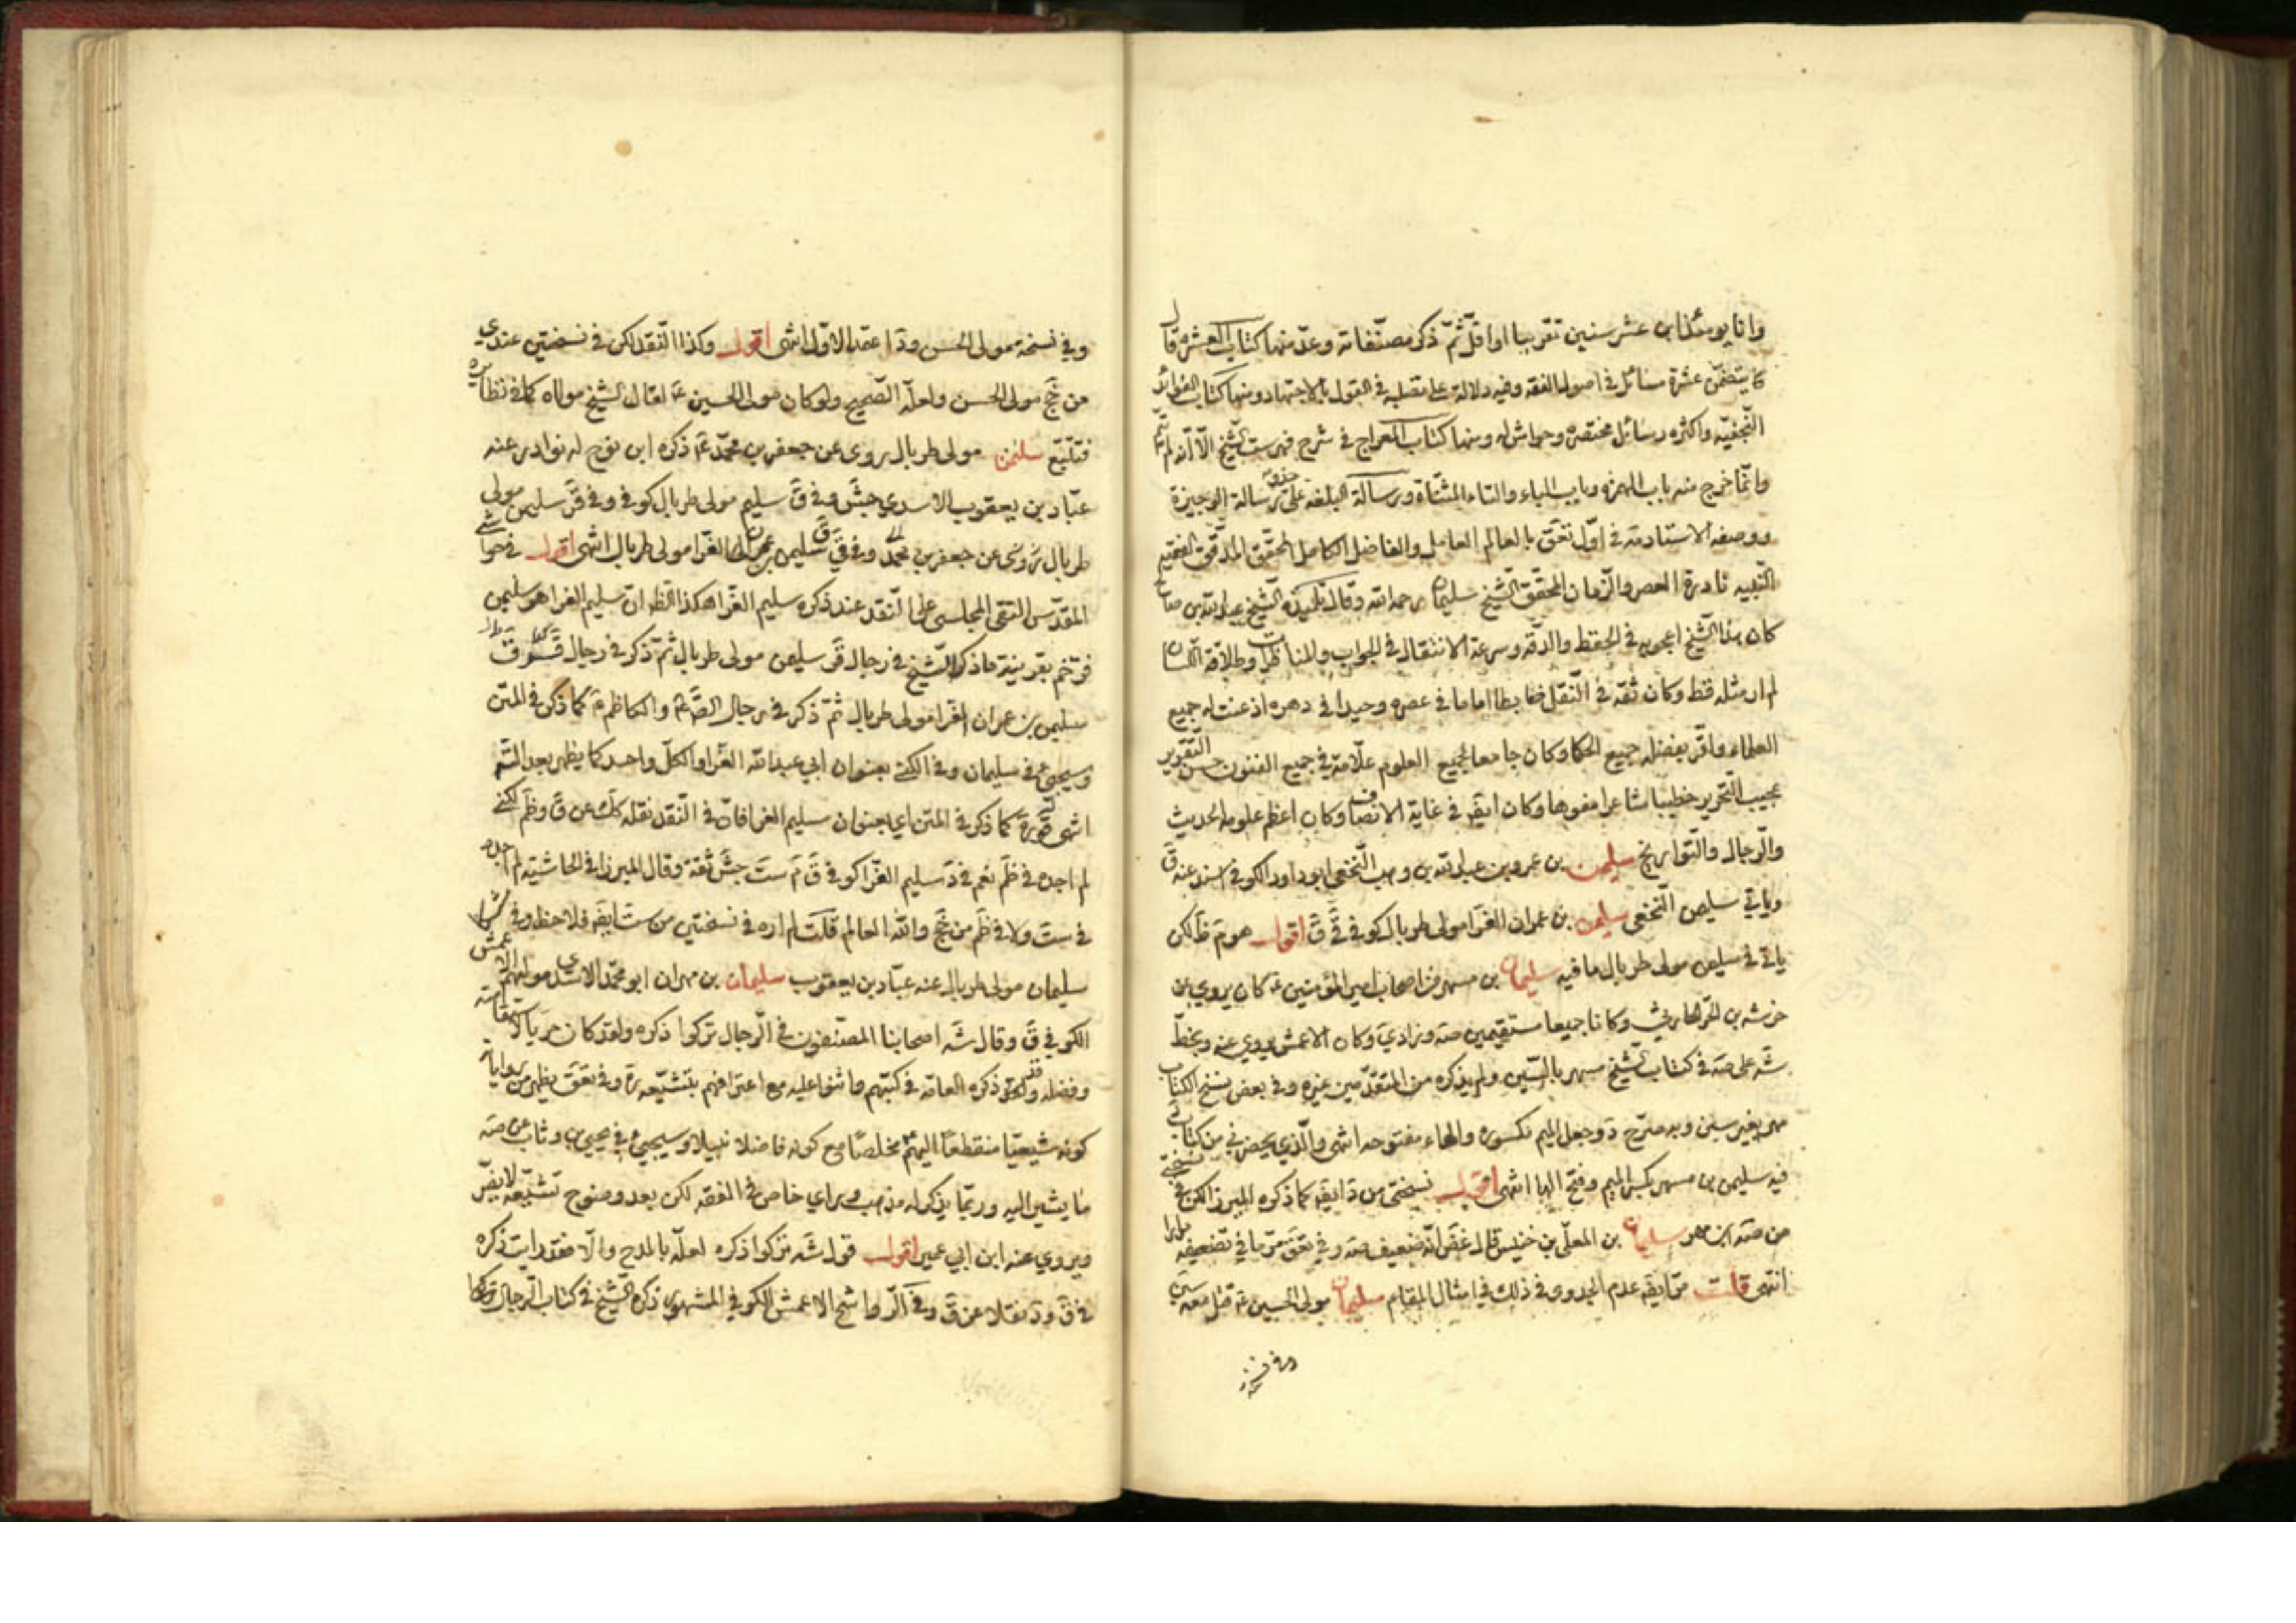 وانا يومئذ ابن عشر سنين تقريبا او اقل ثم ذكر مصنفاته وعد منها كتاب العشرة قال
يتضمن عشرة مسائل في اصول الفقه وفيه دلالة على تصلبه في القول بالاجتهاد ومنها كتاب الفوائد
النجفيه واكثره رسائل مختصرة وحواش له ومنها كتاب المعراج في شرح فهرست الشيخ الا انه لم يتم
وانما خرج منه باب الهمزه وباب الباء والتاء المثناة ورسالة البلغه على حذو رسالة الوجيزة
ووصفه الاستاد في اول تعق بالعالم العامل والفاضل الكامل المحقق المدقق الفقيه
النبيه نادرة العصر والزمان المحقق الشيخ سليمان رحمه الله وقال تلميذه الشيخ عبد الله بن صالح
كان هذا الشيخ اعجوبة في الحفظ والدقه وسرعة الانتقال في الجواب والمناظرات وطلاقة اللسان
لم ار مثله قط وكان ثقه في النقل ضابطا اماما في عصره وحيدا في دهره اذعنت له جميع
العلماء واقر بفضله جميع الحكما وكان جامعا لجميع العلوم علامة في جميع الفنون حسن التقرير
عجيب التحرير خطيبا شاعرا مفوها وكان ايضَ في غاية الانصاف وكان اعظم علومه الحديث
والرجال والتواريخ سليمن بن عمرو بن عبد الله بن وهب النخعي ابو داود الكوفي اسند عنه ق
وياتي سليمن النخعي سليمن بن عمران الفرا مولى طربال كوفي ق اقول هو م ظ لكن
ياتي في سليمن مولى طربال ما فيه سليمان بن مسهر من اصحاب امير المؤمنين ع كان يروي عن
خرشه بن الحر الحارثي وكانا جميعا مستقيمين صه وزاد ي وكان الاعمش يروي عنه وبخط
شه على صه في كتاب الشيخ مسهر بالسين ولم يذكره من المتقدمين غيره وفي بعض نسخ الكتاب
مهر بغير سين وبه صرح د وجعل الميم مكسوره والهاء مفتوحه انتهى والذي يحضرني من كتاب
فيه سليمن بن مسهر بكسر الميم وفتح الها انتهى اقول نسختي من د ايضَ كما ذكره الميرزا لكن في نسختي
من صه ابن مهر سليمان بن المعلى بن خنيس قال غض انه ضعيف صه وفي تعق مر ما في تضعيفه مرارا
انتهى قلت مر ايضَ عدم الجدوى في ذلك في امثال المقام سليمان مولى الحسين ع قتل معه سين
وفي نسخة
وفي نسخة مولى الحسن ود اعتمد الاول انتهى اقول وكذا النقد لكن في نسختين عندي
من جخ مولى الحسن ولعله الصحيح ولو كان مولى الحسين ع لقال الشيخ مولاه كما في نظائره
فتتبع سليمن مولى طربال روى عن جعفر بن محمد ع ذكره ابن نوح له نوادر عنه
عباد بن يعقوب الاسدي جش وفي ق سليم مولى طربال كوفي وفي قر سليمن مولى
طربال روى عن جعفر بن محمد وفي ق سليمن بن عمران الفرا مولى طربال انتهى اقول في حواشي
المقدس التقي المجلسي على النقد عند ذكره سليم الفرا هكذا الظ ان سليم الفرا هو سليمن
فرخم بقرينة ما ذكر الشيخ في رجال قر سليمن مولى طربال ثم ذكر في رجال
سليمن بن عمران الفرا مولى طربال ثم ذكر في رجال الصادق والكاظم ع كما ذكر في المتن
وسيجيء في سليمان وفي الكنى بعنوان ابي عبد الله الفرا والكل واحد كما يظهر بعد التتبع
انتهى كما ذكر في المتن اي بعنوان سليم الفرا فان في النقد نقله كك عن ق وظم لكني
لم اجده في ظم نعم في د سليم الفرا كوفي ق م ست جش ثقة وقال الميرزا في الحاشية لم اجده
في ست ولا في ظم من جخ والله العالم قلت لم اره في نسختين من ست ايضَ فلاحظ وفي
سليمان مولى طربال عنه عباد بن يعقوب سليمان بن مهران ابو محمد الاسدي مولاهم الاعمش
الكوفي ق وقال شه اصحابنا المصنفون في الرجال تركوا ذكره ولقد كان حريا لاستقامته
وفضله وقد ذكره العامه في كتبهم واثنوا عليه مع اعترافهم بتشيعه ره وفي تعق يظهر من رواياته
كونه شيعيا منقطعا اليهم ع مخلصا مع كونه فاضلا نبيلا وسيجيء في يحيى بن وثاب عن صه
ما يشير اليه وربما يذكر له مذهب وراي خاص في الفقه لكن بعد وضوح تشيعه لا يضر
ويروي عنه ابن ابي عمير اقول قول شه تركوا ذكره لعله بالمدح والا فقد رايت ذكره
في ق ود نقلا عن ق وفي الرواشح الاعمش الكوفي المشهور ذكره الشيخ في كتاب الرجال